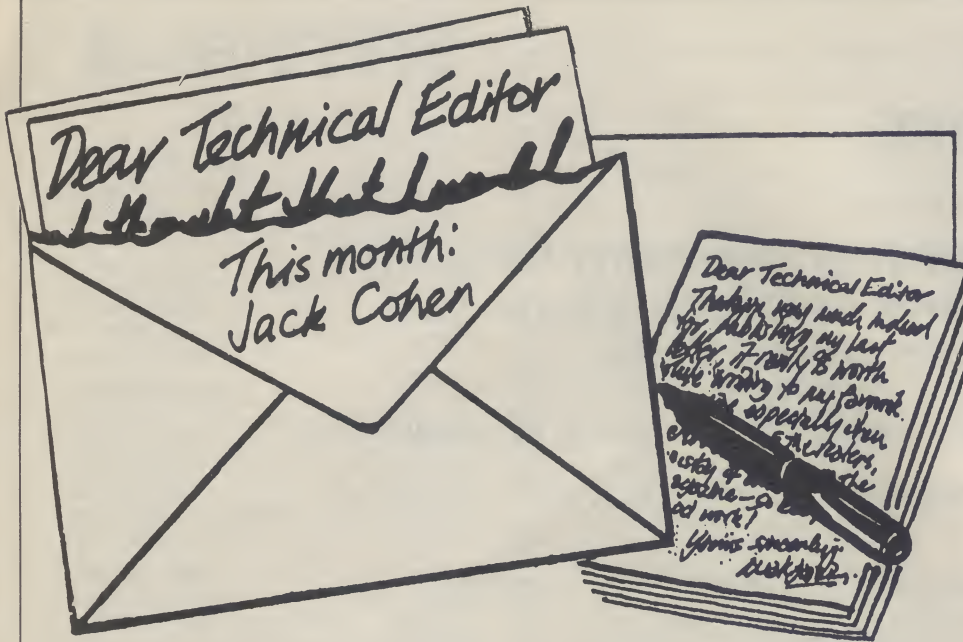 Dear Technical Editor
I thought that I would
This month:
Jack Cohen
Dear Technical Editor
Thank you very much indeed
for publishing my last
letter, it really is worth
while writing to my favourite
especially when
the readers,
the
work!
Yours sincerely